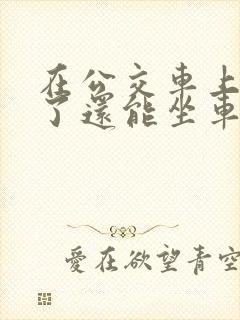 在公交車上
了還能坐車
愛在欲望青空